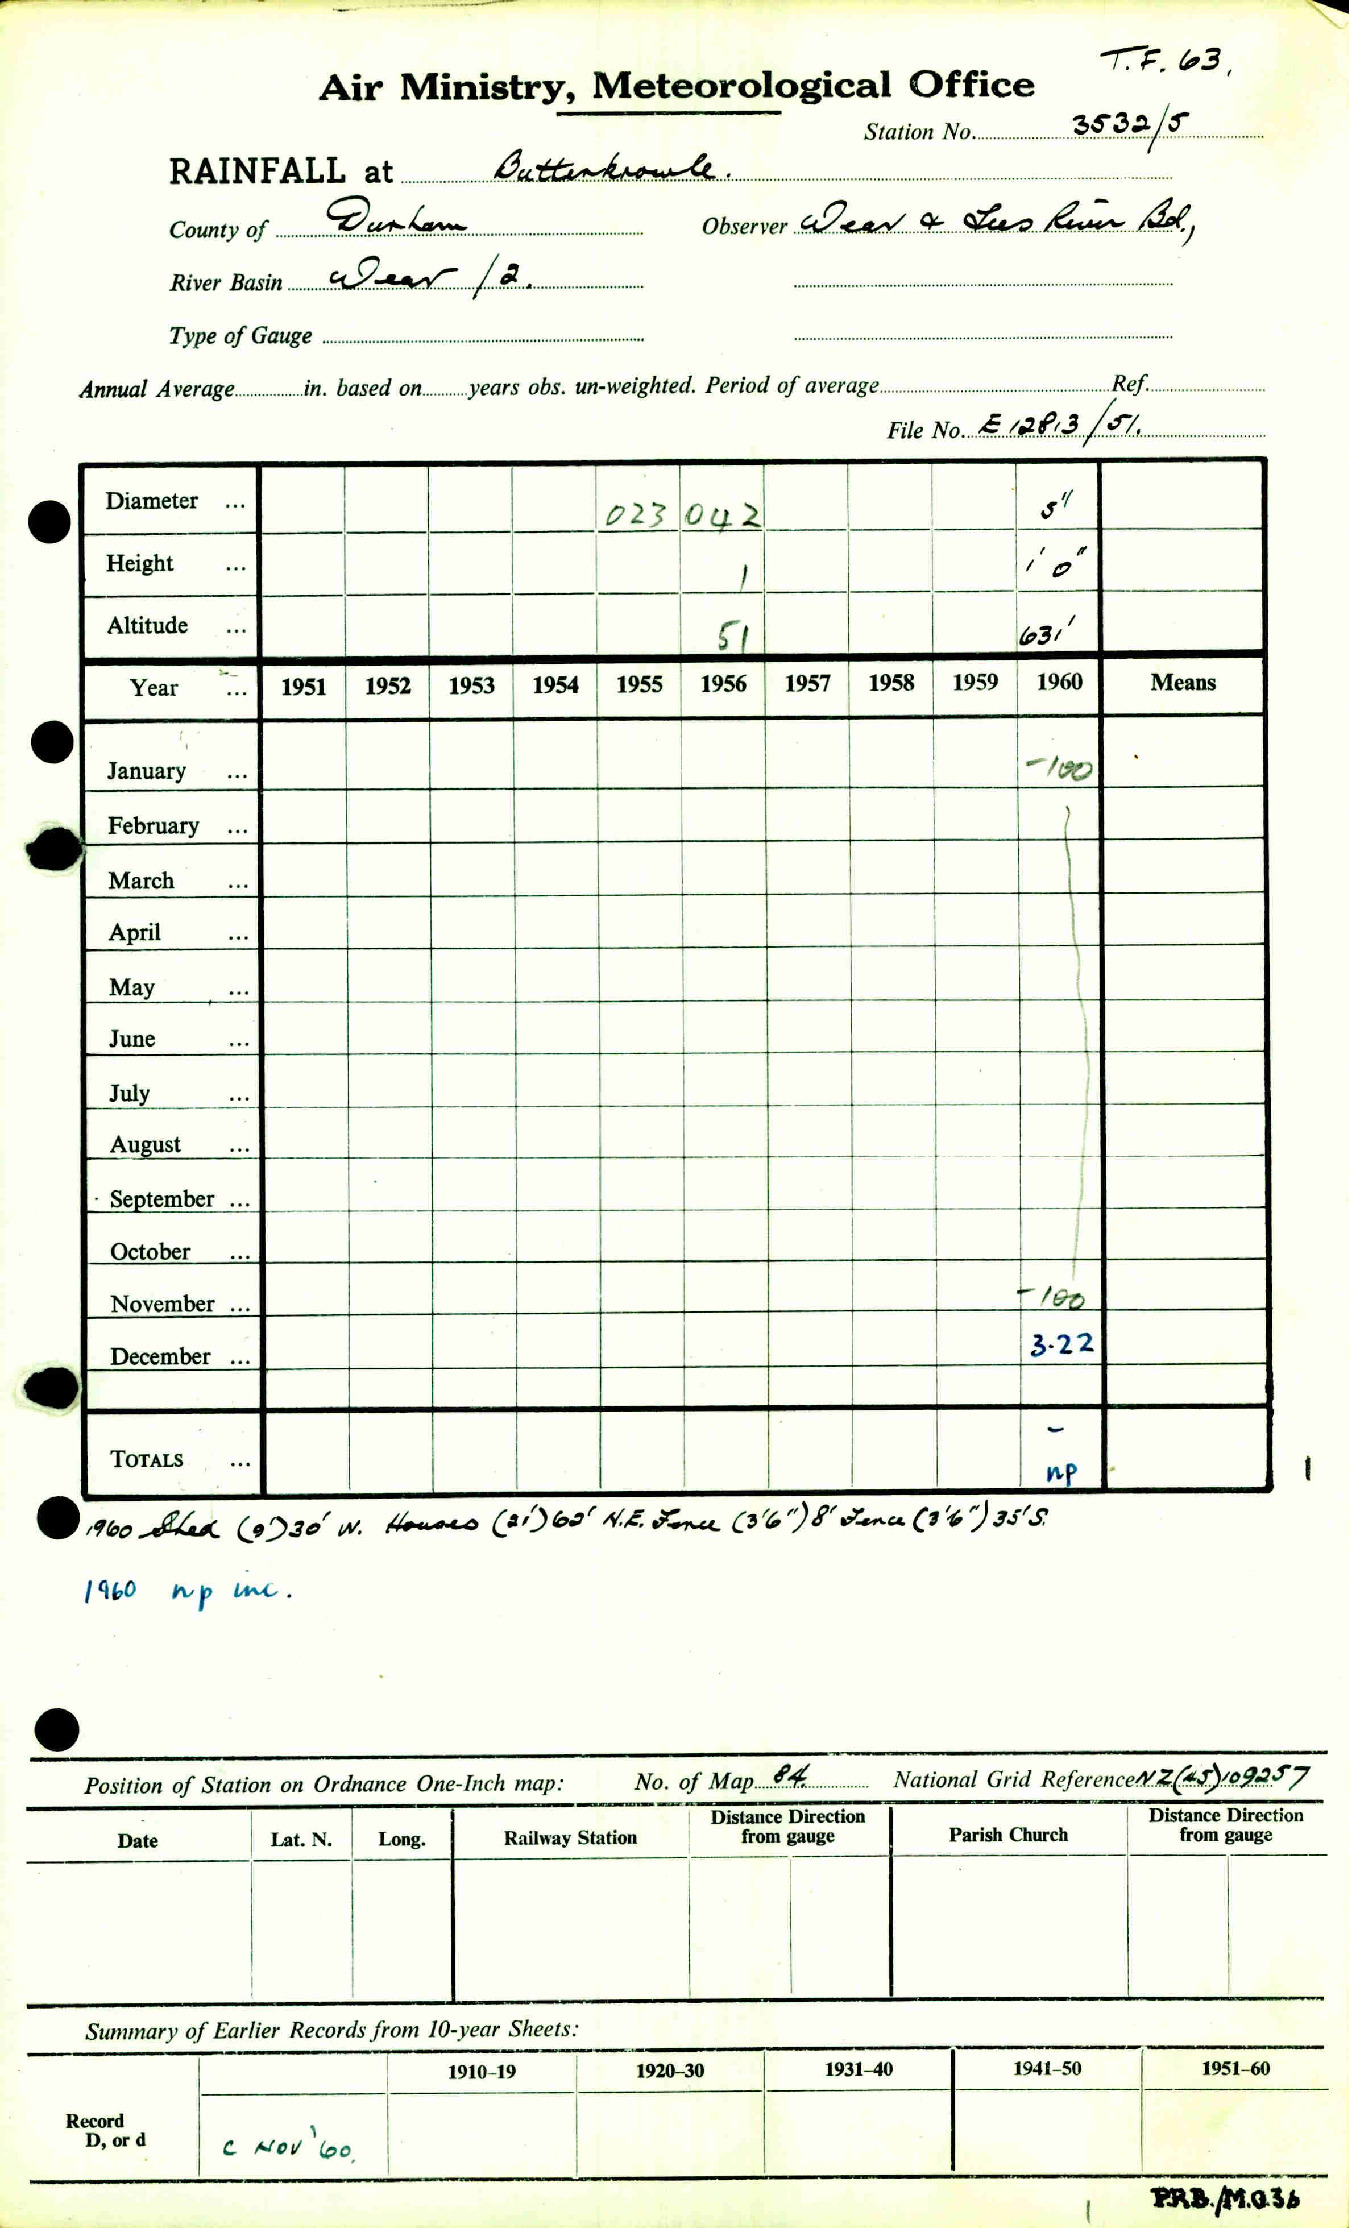 T.F. 63.
Air Ministry, Meteorological Office
Station No. 3532/5
RAINFALL at Butterknowle.
County of Durham Observer Wear & Tees River Bd.,
River Basin Wear /2.
Type of Gauge
Annual Average in. based on years obs. un-weighted. Period of average Ref.
File No. E12813/51.
Diameter ... 023 042 5"
Height ... 1 1' 0"
Altitude ... 51 631'
Year ... 1951 1952 1953 1954 1955 1956 1957 1958 1959 1960 Means
January ... -100
February ...
March ...
April ...
May ...
June ...
July ...
August ...
September ...
October ...
November ... -100
December ... 3.22
-
TOTALS ... np
1960 Shed (9')30' W. Houses (21')60' N.E. Fence (3'6")8' Fence (3'6")35'S.
1960 np inc.
Position of Station on Ordnance One-Inch map: No. of Map 84 National Grid Reference NZ(45)109257
Date Lat. N. Long. Railway Station Distance Direction from gauge Parish Church Distance Direction from gauge
Summary of Earlier Records from 10-year Sheets:
1910-19 1920-30 1931-40 1941-50 1951-60
Record
D, or d C NOV '60.
P.R.B./M.O.36